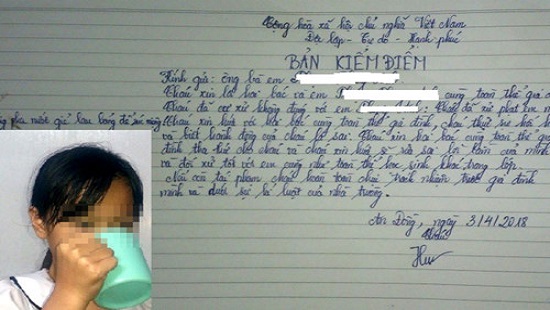 Cộng hoà xã hội chủ nghĩa Việt Nam
Độc lập - Tự do - Hạnh phúc
BẢN KIỂM ĐIỂM
Kính gửi: ông bà em
Cháu xin lỗi hai bác và em cùng toàn thể gia đ
Cháu đã cư xử không đúng với em phạt em
Cháu xin hứa với hai bác cùng toàn thể gia đình,
và biết hành động của cháu là sai. Cháu xin hai bác cùng toàn thể gia
đình tha thứ cho cháu và cháu xin hứa sẽ sửa sai lỗi lầm của mình
và đối xử tốt với em cũng như toàn thể học sinh khác trong lớp.
Nếu còn tái phạm cháu hoàn toàn chịu trách nhiệm trước gia đình
mình và dưới sự kỉ luật của nhà trường.
An Đồng, ngày 3/4/2018